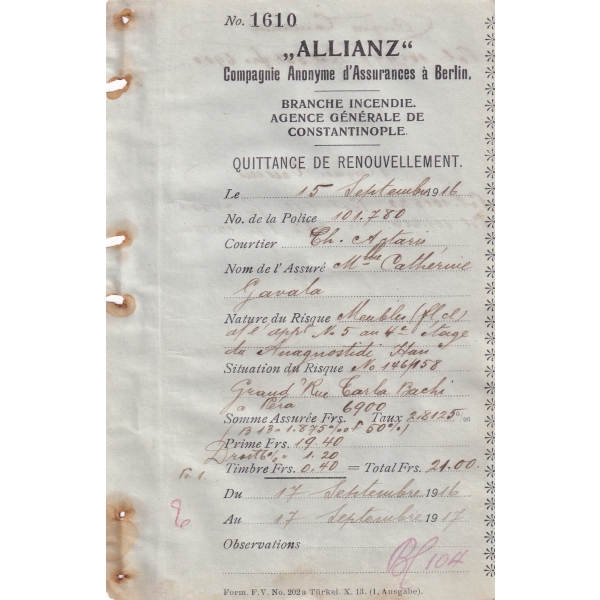 No. 1610
„ALLIANZ“
Compagnie Anonyme d'Assurances à Berlin.
BRANCHE INCENDIE.
AGENCE GÉNÉRALE DE
CONSTANTINOPLE.
QUITTANCE DE RENOUVELLEMENT.
Le 15 Septembre 1916
No. de la Police 101.780
Courtier Th. Aptaris
Nom de l'Assuré Mlle Catherine
Gavala
Nature du Risque Meubles (fl,cl)
af l'appt No 5 au 4e étage
du Anagnostidi Han
Situation du Risque No 146/158
Grand' Rue Carla Bachi
à Péra
Somme Assurée Frs. 6900 Taux 2.8125‰
(B 13 = 1.875‰ + 50%)
Prime Frs. 19.40
Droit 6% = 1.20
Timbre Frs. 0.40 = Total Frs. 21.00.
Du 17 Septembre 1916
Au 17 Septembre 1917
Observations
104
Form. F.V. No. 202a Türkei. X. 13. (1, Ausgabe).